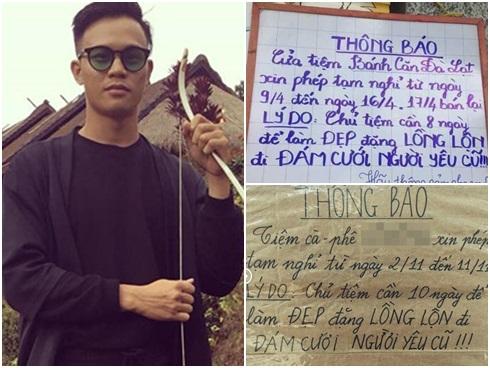 THÔNG BÁO
Cửa tiệm Bánh Căn Đà Lạt
xin phép tạm nghỉ từ ngày
9/4 đến ngày 16/4. 17/4 bán lại
LÝ DO: Chủ tiệm cần 8 ngày
để làm ĐẸP đặng LỒNG LỘN
đi ĐÁM CƯỚI NGƯỜI YÊU CŨ!!!
Hãy thông cảm
THÔNG BÁO
Tiệm cà-phê xin phép
tạm nghỉ từ ngày 2/11 đến 11/11
LÝ DO: Chủ tiệm cần 10 ngày để
làm ĐẸP đặng LỒNG LỘN đi
ĐÁM CƯỚI NGƯỜI YÊU CŨ!!!